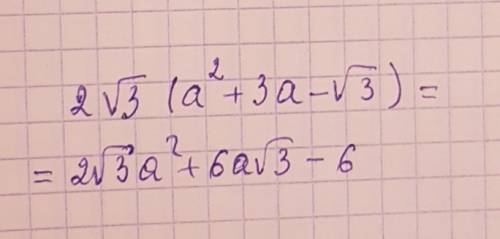 2√3 (a² + 3a − √3) =
= 2√3a² + 6a√3 − 6